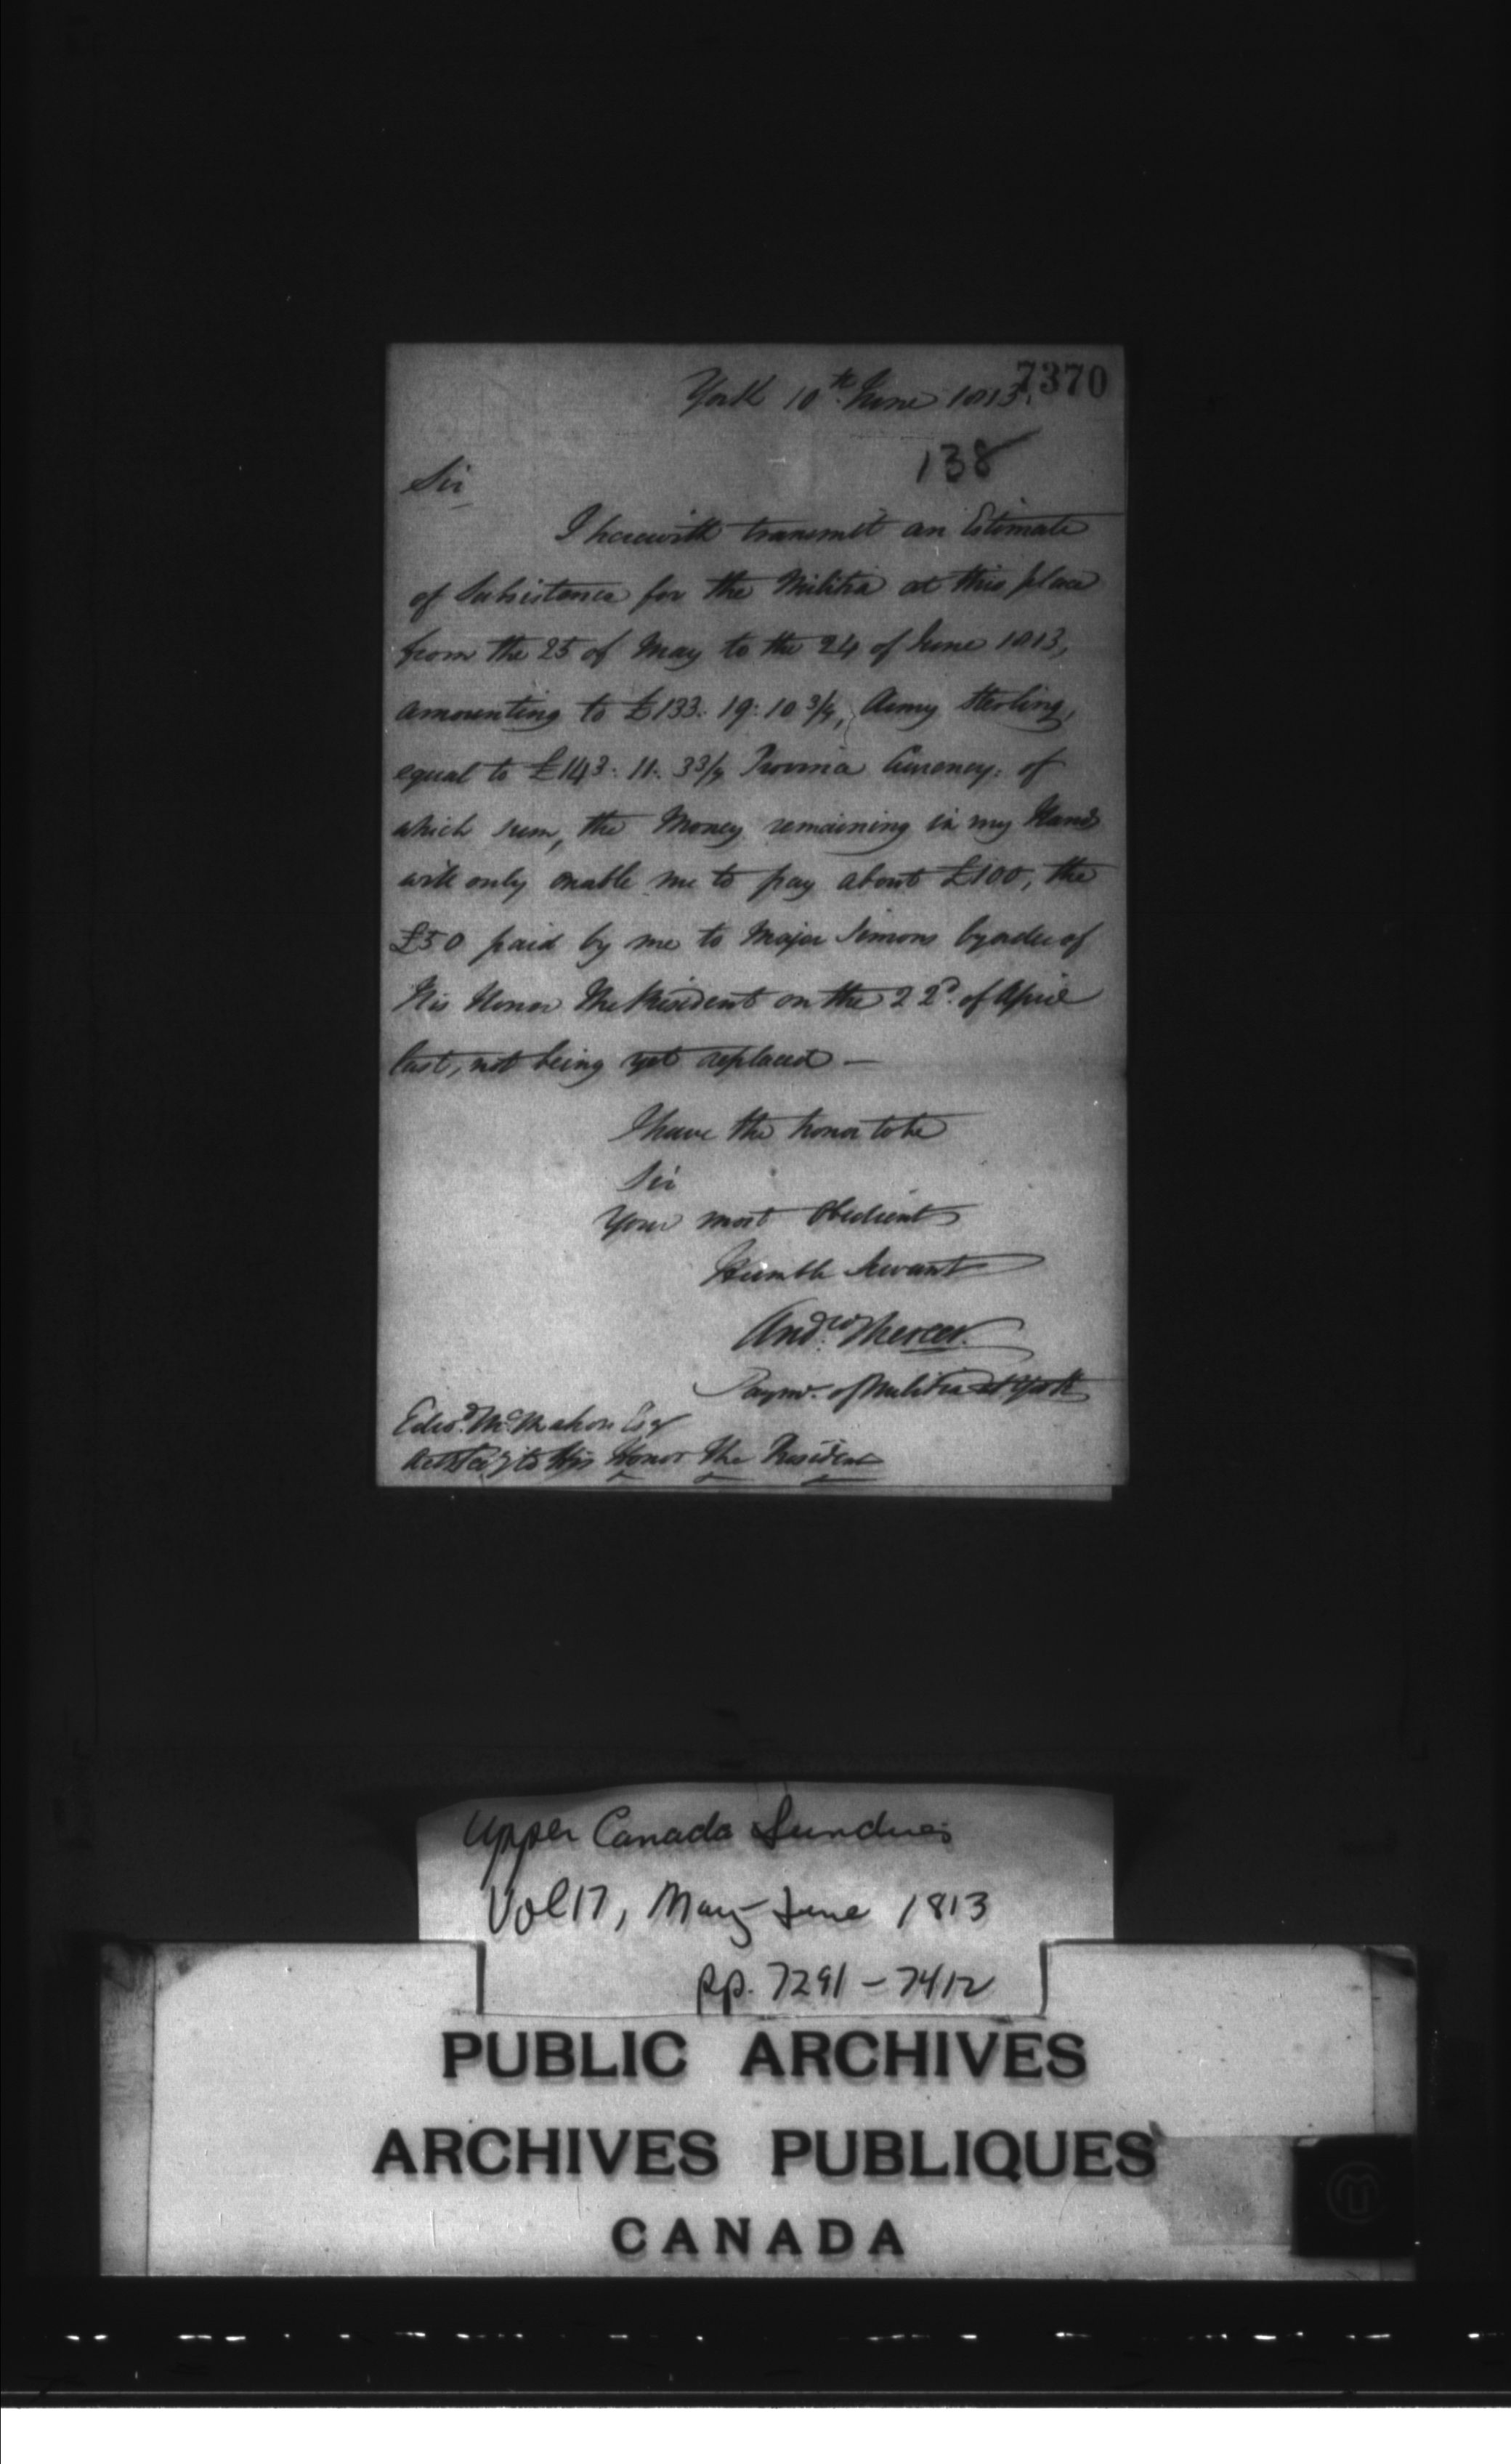 7370
York 10th June 1813.
138
Sir
I herewith transmit an Estimate
of Subsistence for the Militia at this place
from the 25 of May to the 24 of June 1813,
amounting to £133: 19: 10 3/4, Army Sterling,
equal to £143: 11: 3 3/4 Province Currency: of
which sum, the Money remaining in my Hands
will only enable me to pay about £100, the
£50 paid by me to Major Simons by order of
His Honor The President on the 22d. of April
last, not being yet replaced —
I have the honor to be
Sir
Your most Obedient
Humble Servant
Andw. Mercer.
Paymr. of Militia at York
Edwd. McMahon Esqr
Act Secy to His Honor The President
Upper Canada Sundries
Vol 17, May-June 1813
pp. 7291 – 7412
PUBLIC ARCHIVES
ARCHIVES PUBLIQUES
CANADA